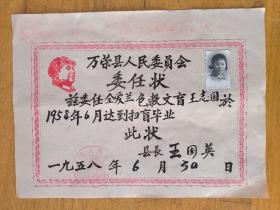 万荣县人民委员会
委任状
兹委任仝发兰包教文盲王志国於
1958年6月达到扫盲毕业
此状
县長王国英
一九五八年6月30日